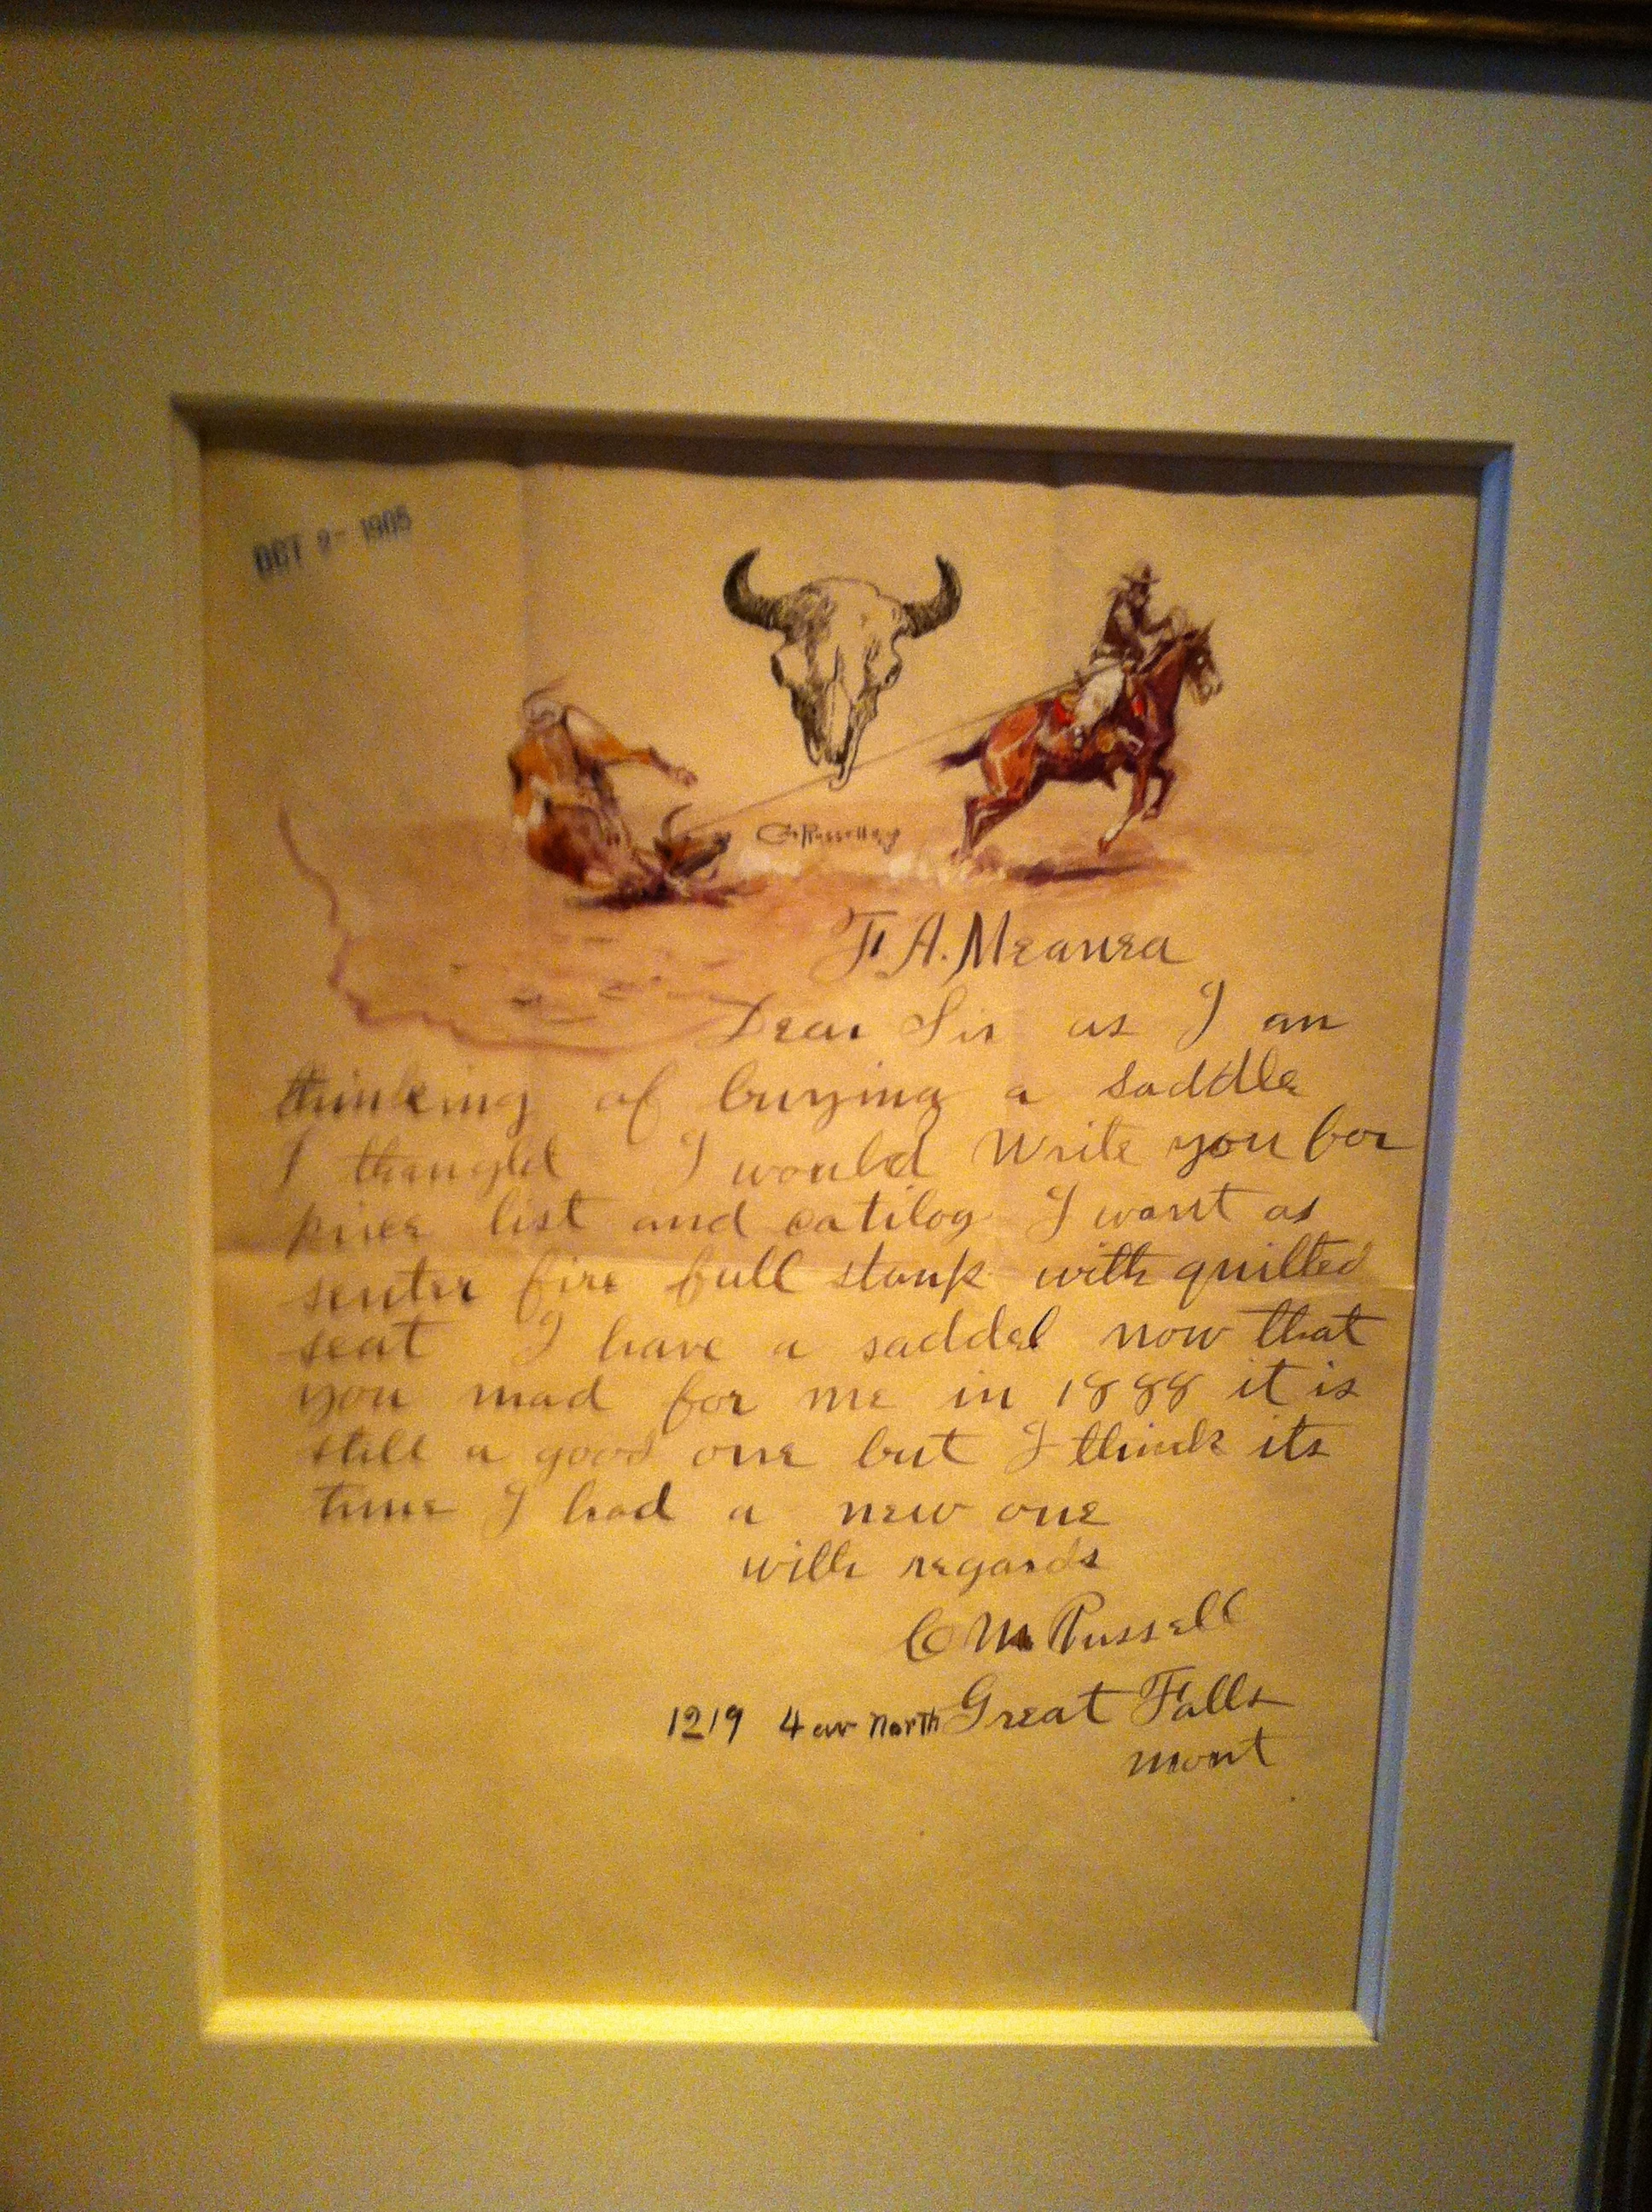 OCT 2- 1905
CM Russell
F. A. Meanea
Dear Sir as I am
thinking of buying a saddle
I thought I would Write you for
price list and catilog I want as
senter fire full stank with quilted
seat I have a saddel now that
you mad for me in 1888 it is
still a good one but I think its
time I had a new one
with regards
C M Russell
1219 4 av North Great Falls
mont